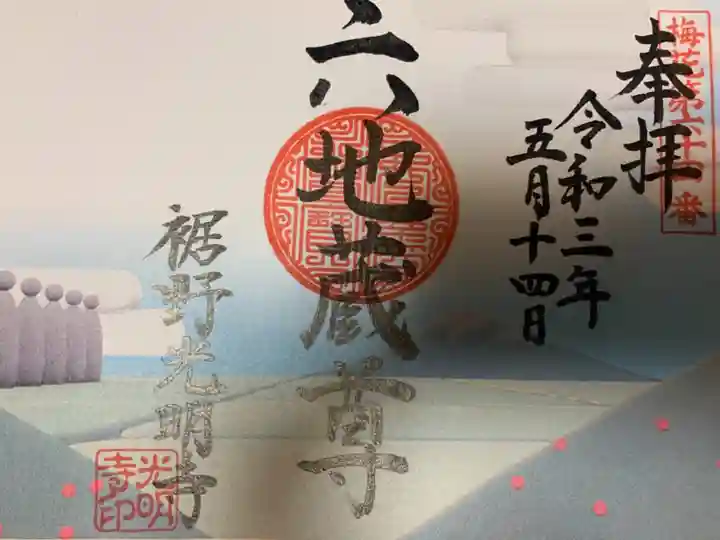 奉拝
令和三年
五月十四日
六地蔵尊
裾野光明寺
光明
寺印